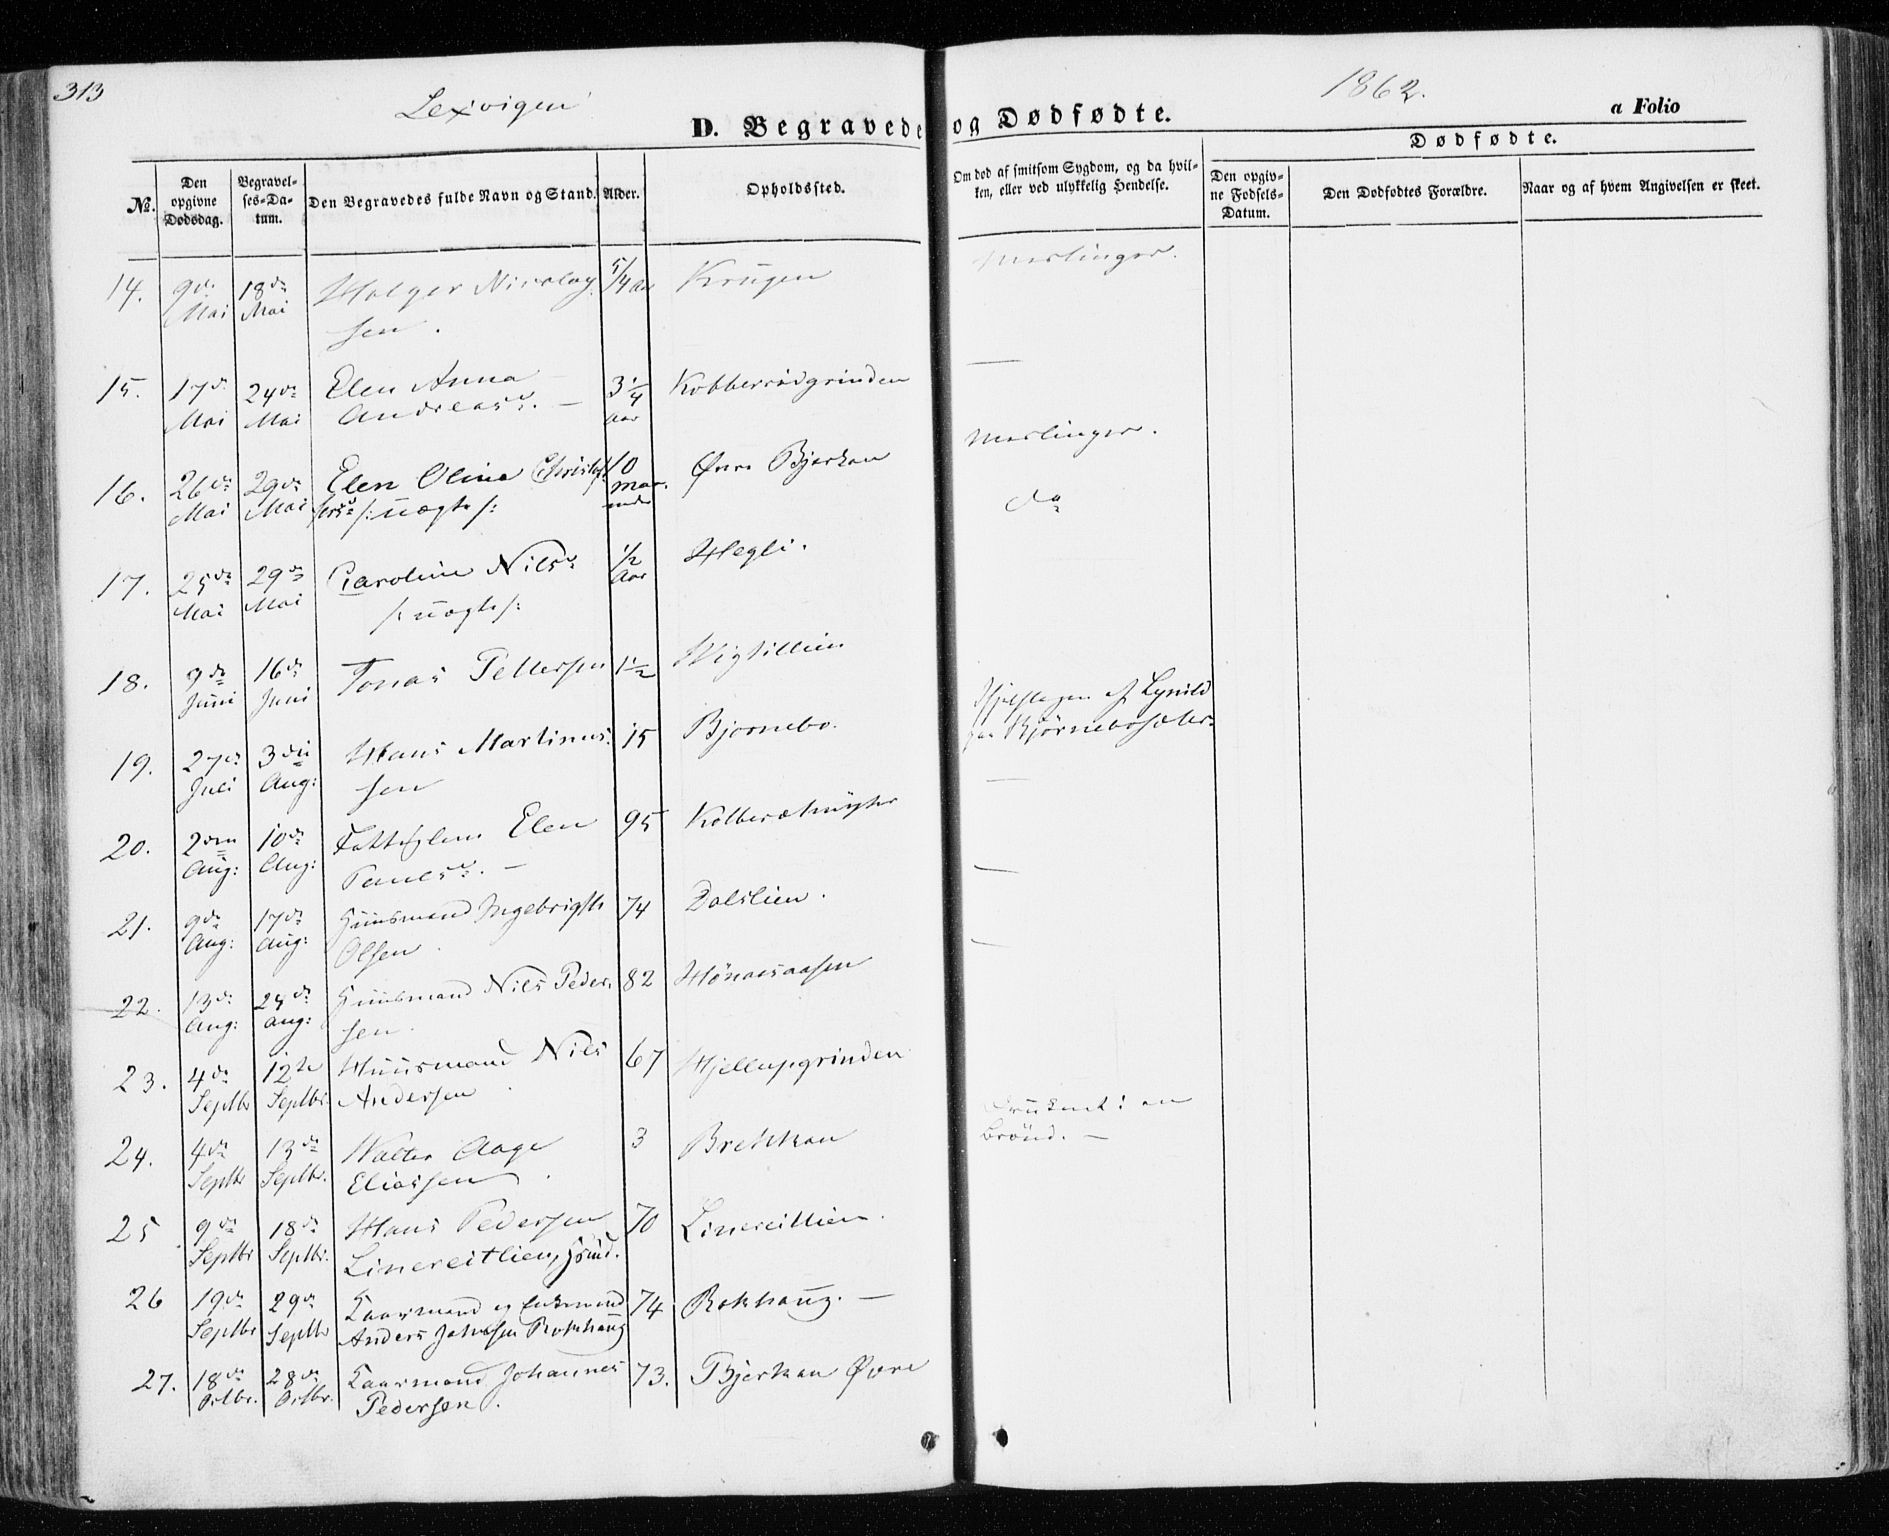 313
Lexvigen
1862.
D. Begravede og Dødfødte.
a Folio
Dødfødte.
No.
Den opgivne Dødsdag.
Begravelses-Datum.
Den Begravedes fulde Navn og Stand.
Alder.
Opholdssted.
Om død af smitsom Sygdom, og da hvilken, eller ved ulykkelig Hendelse.
Den opgivne Fødsels-Datum.
Den Dødfødtes Forældre.
Naar og af hvem Angivelsen er skeet.
14. 9de Mai 18de Mai Holger Nicolaysen. 5/4 Aar Krogen Meslinger.
15. 17de Mai 24de Mai Elen Anna Andreasd. — 3 1/4 Aar Kobberrødgrinden —
16. 26de Mai 29de Mai Elen Olina /:uægte:/ 10 Maaneder Øvre Bjerkan Meslinger.
17. 25de Mai 29de Mai Caroline Nilsd. /:uægte:/ 1/2 Aar Hegli. do
18. 9de Juni 16de Juni Jonas Pettersen 1 1/2
19. 27de Juli 3die Aug: Hans Martinussen 15 Bjørnebo. Ihjelslagen af Lynild paa Bjørneboseter.
20. 2den Aug: 10de Aug: Elen 95 —
21. 9de Aug: 17de Aug: Huusmand Ingebrigt Olsen 74 Dalslien. —
22. 13de Aug: 24de Aug: Huusmand Nils Pedersen. 82 —
23. 4de Septbr 12te Septbr. Huusmand Nils Andersen 67 Hjellupgrinden
24. 4de Septbr 13de Septbr. Walter Aage Eliassen. 3 Brekkan Druknet i en Brønd. —
25 9de Septbr 18de Septbr. Hans Pedersen Linereitlien, Hsmd. 70 Linereitlien.
26 19de Septbr 29de Septbr Kaarmand og Enkemand Anders Rokhaug 74 Rokhaug. —
27. 18de Octbr. 28de Octbr. Kaarmand Johannes Pedersen. 73. Bjerkan Øvre